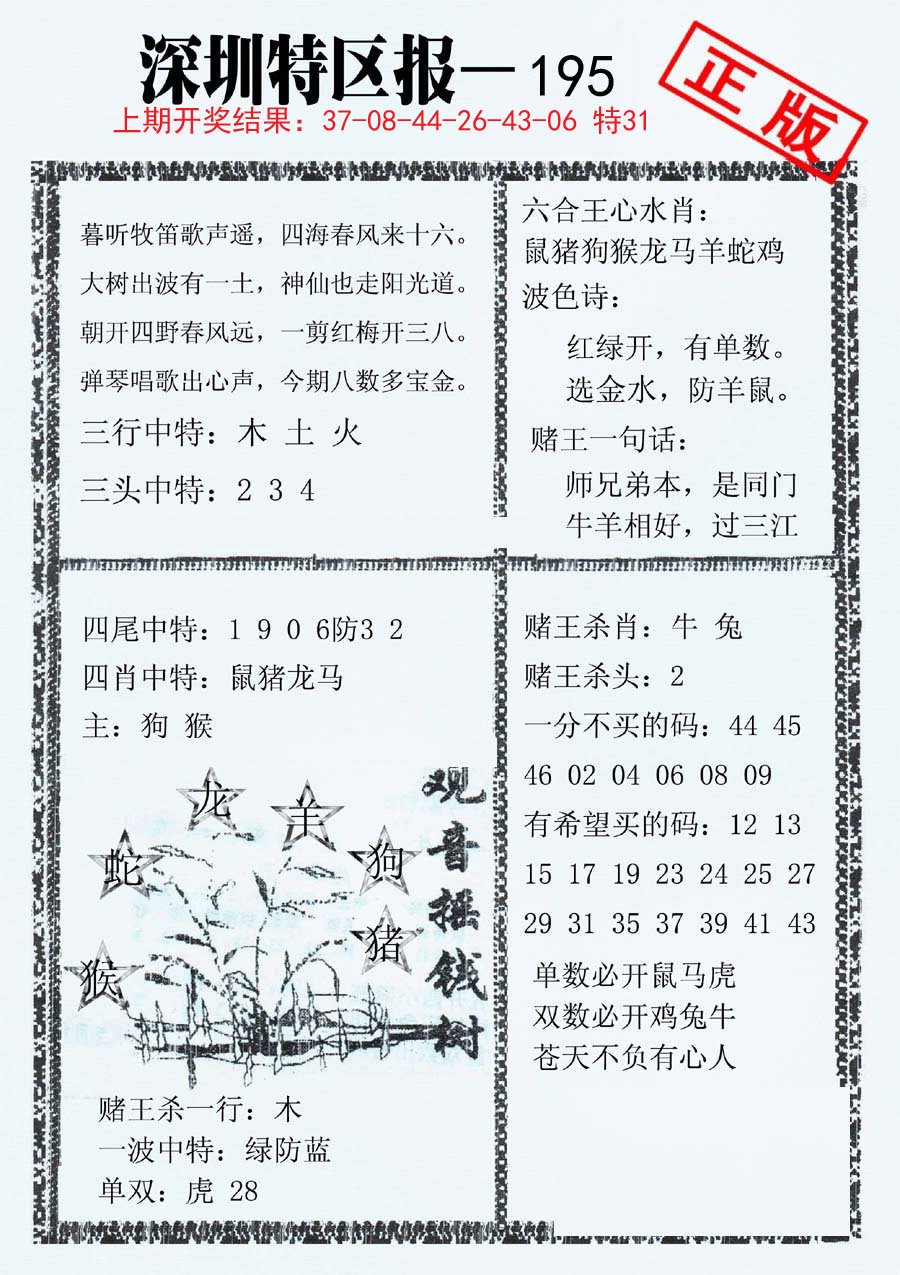 深圳特区报—195
正版
上期开奖结果：37-08-44-26-43-06 特31
暮听牧笛歌声遥，四海春风来十六。
大树出波有一土，神仙也走阳光道。
朝开四野春风远，一剪红梅开三八。
弹琴唱歌出心声，今期八数多宝金。
三行中特：木 土 火
三头中特：2 3 4
六合王心水肖：
鼠猪狗猴龙马羊蛇鸡
波色诗：
红绿开，有单数。
选金水，防羊鼠。
赌王一句话：
师兄弟本，是同门
牛羊相好，过三江
四尾中特：1 9 0 6防3 2
四肖中特：鼠猪龙马
主：狗 猴
龙
羊
蛇
狗
猪
猴
观音摇钱树
赌王杀一行：木
一波中特：绿防蓝
单双：虎 28
赌王杀肖：牛 兔
赌王杀头：2
一分不买的码：44 45
46 02 04 06 08 09
有希望买的码：12 13
15 17 19 23 24 25 27
29 31 35 37 39 41 43
单数必开鼠马虎
双数必开鸡兔牛
苍天不负有心人